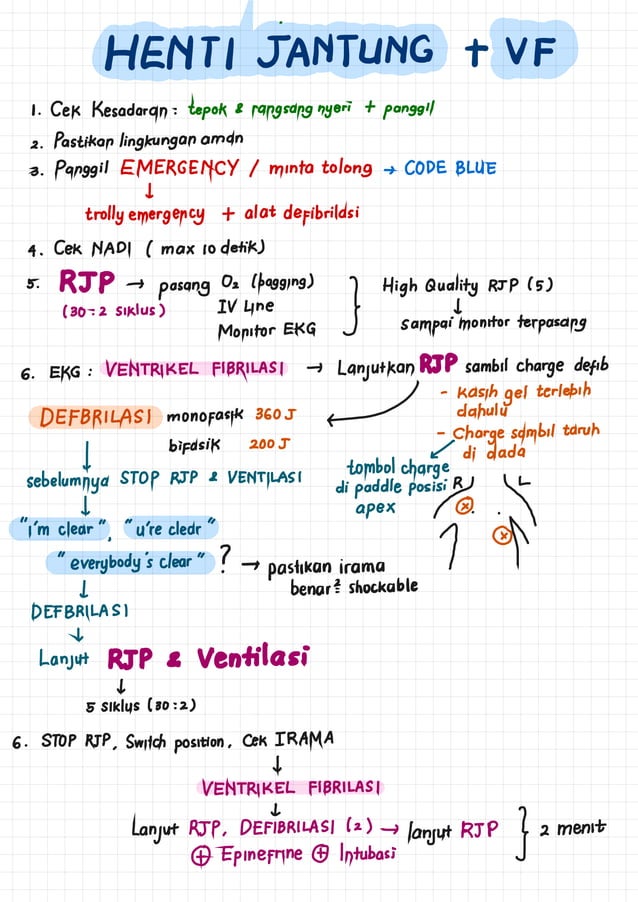 HENTI JANTUNG + VF
1. Cek Kesadaran : tepok & rangsang nyeri + panggil
2. Pastikan lingkungan aman
3. Panggil EMERGENCY / minta tolong → CODE BLUE
↓
trolly emergency + alat defibrilasi
4. Cek NADI ( max 10 detik)
5. RJP → pasang O2 (bagging)
(30:2 siklus)
IV Line
Monitor EKG
High Quality RJP (5)
↓
sampai monitor terpasang
6. EKG : VENTRIKEL FIBRILASI → Lanjutkan RJP sambil charge defib
- Kasih gel terlebih
dahulu
- Charge sambil taruh
di dada
tombol charge
di paddle posisi
apex
R L
DEFBRILASI monofasik 360 J
bifasik 200 J
↓
sebelumnya STOP RJP & VENTILASI
↓
"i'm clear", "u're clear"
"everybody's clear" ? → pastikan irama
benar² shockable
↓
DEFBRILASI
↓
Lanjut RJP & Ventilasi
↓
5 siklus (30:2)
6. STOP RJP, Switch position, Cek IRAMA
↓
VENTRIKEL FIBRILASI
↓
Lanjut RJP, DEFIBRILASI (2) → lanjut RJP
⊕ Epinefrine ⊕ Intubasi
2 menit